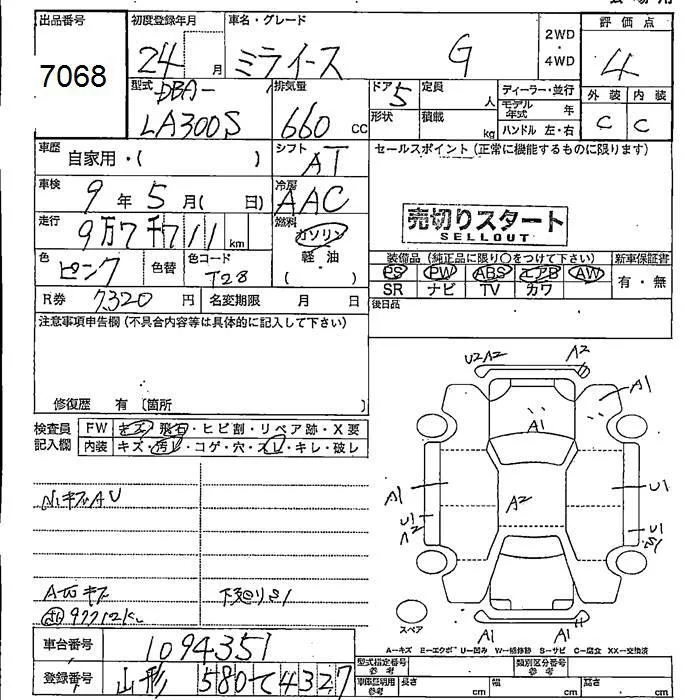 出品番号
7068
初度登録年月
24 月
車名・グレード
ミライース G
2WD
・
4WD
評価点
4
型式
DBA-
LA300S
排気量
660 cc
ドア
5
定員
人
形状
積載
kg
ディーラー・並行
モデル年式 年
ハンドル 左・右
外装 内装
C C
車歴
自家用・( )
シフト
AT
セールスポイント(正常に機能するものに限ります)
車検
9年5月( 日)
冷房
AAC
売切りスタート
SELLOUT
走行
9万7千711km
燃料
ガソリン
軽・油
( )
色
ピンク
色替
色コード
T28
装備品(純正品に限り○をつけて下さい)
新車保証書
PS PW ABS エアB AW
SR ナビ TV カワ
有・無
R券 7,320 円
名変期限 月 日
後日品
注意事項申告欄(不具合内容等は具体的に記入して下さい)
修復歴 有〔箇所 〕
検査員記入欄
FW キズ・飛石・ヒビ割・リペア跡・X要
内装 キズ・汚レ・コゲ・穴・スレ・キレ・破レ
U2 A2 A2
A1
A1
A1 A2 U1
U1 U1
A2 S1
A1 A1
スペア
A-キズ E-エクボ U-凹み W-補修跡 S-サビ C-腐食 XX-交換済
車台番号
1094351
登録番号
山形 580 て 4327
型式指定番号
参考
類別区分番号
参考
車庫証明用
参考
長さ cm
幅 cm
高さ cm